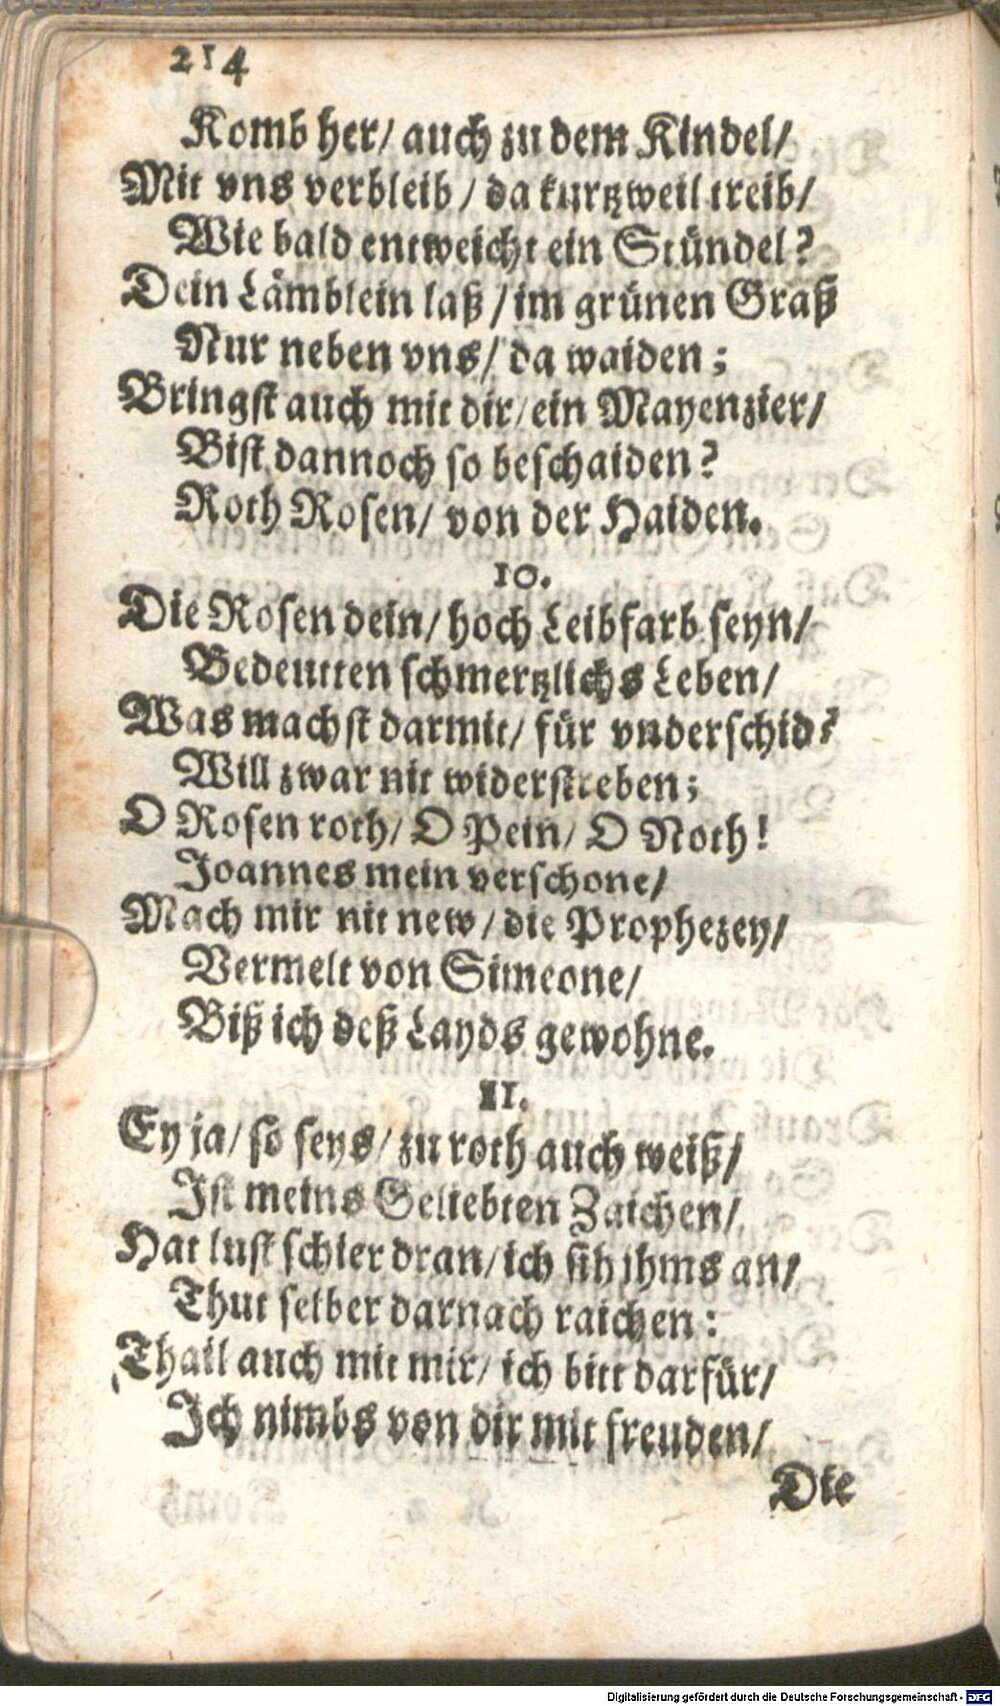 214
Komb her/ auch zu dem Kindel/
Mit vns verbleib / da kurtzweil treib/
Wie bald entweicht ein Stündel?
Dein Lämblein laß / im grünen Graß
Nur neben vns/ da waiden;
Bringst auch mit dir/ ein Mayenzier/
Bist dannoch so beschaiden?
Roth Rosen/ von der Haiden.
10.
Die Rosen dein/ hoch Leibfarb seyn/
Bedeutten schmertzlichs Leben/
Was machst darmit/ für vnderschid?
Will zwar nit widerstreben;
O Rosen roth/ O Pein/ O Noth!
Joannes mein verschone/
Mach mir nit new/ die Prophezey/
Vermelt von Simeone/
Biß ich deß Layds gewohne.
11.
Ey ja/ so seys/ zu roth auch weiß/
Ist meins Geliebten Zaichen/
Hat lust schier dran/ ich sih ihms an/
Thut selber darnach raichen:
Thail auch mit mir/ ich bitt darfür/
Ich nimbs von dir mit freuden/
Die
Digitalisierung gefördert durch die Deutsche Forschungsgemeinschaft - DFG